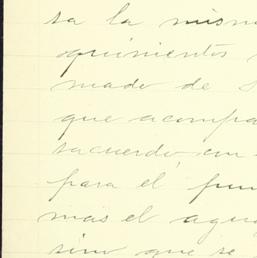 sa la mism
quinientos
mado de S
que acompa
sacuerdo, con
para el pun
mas el agu
sino que se